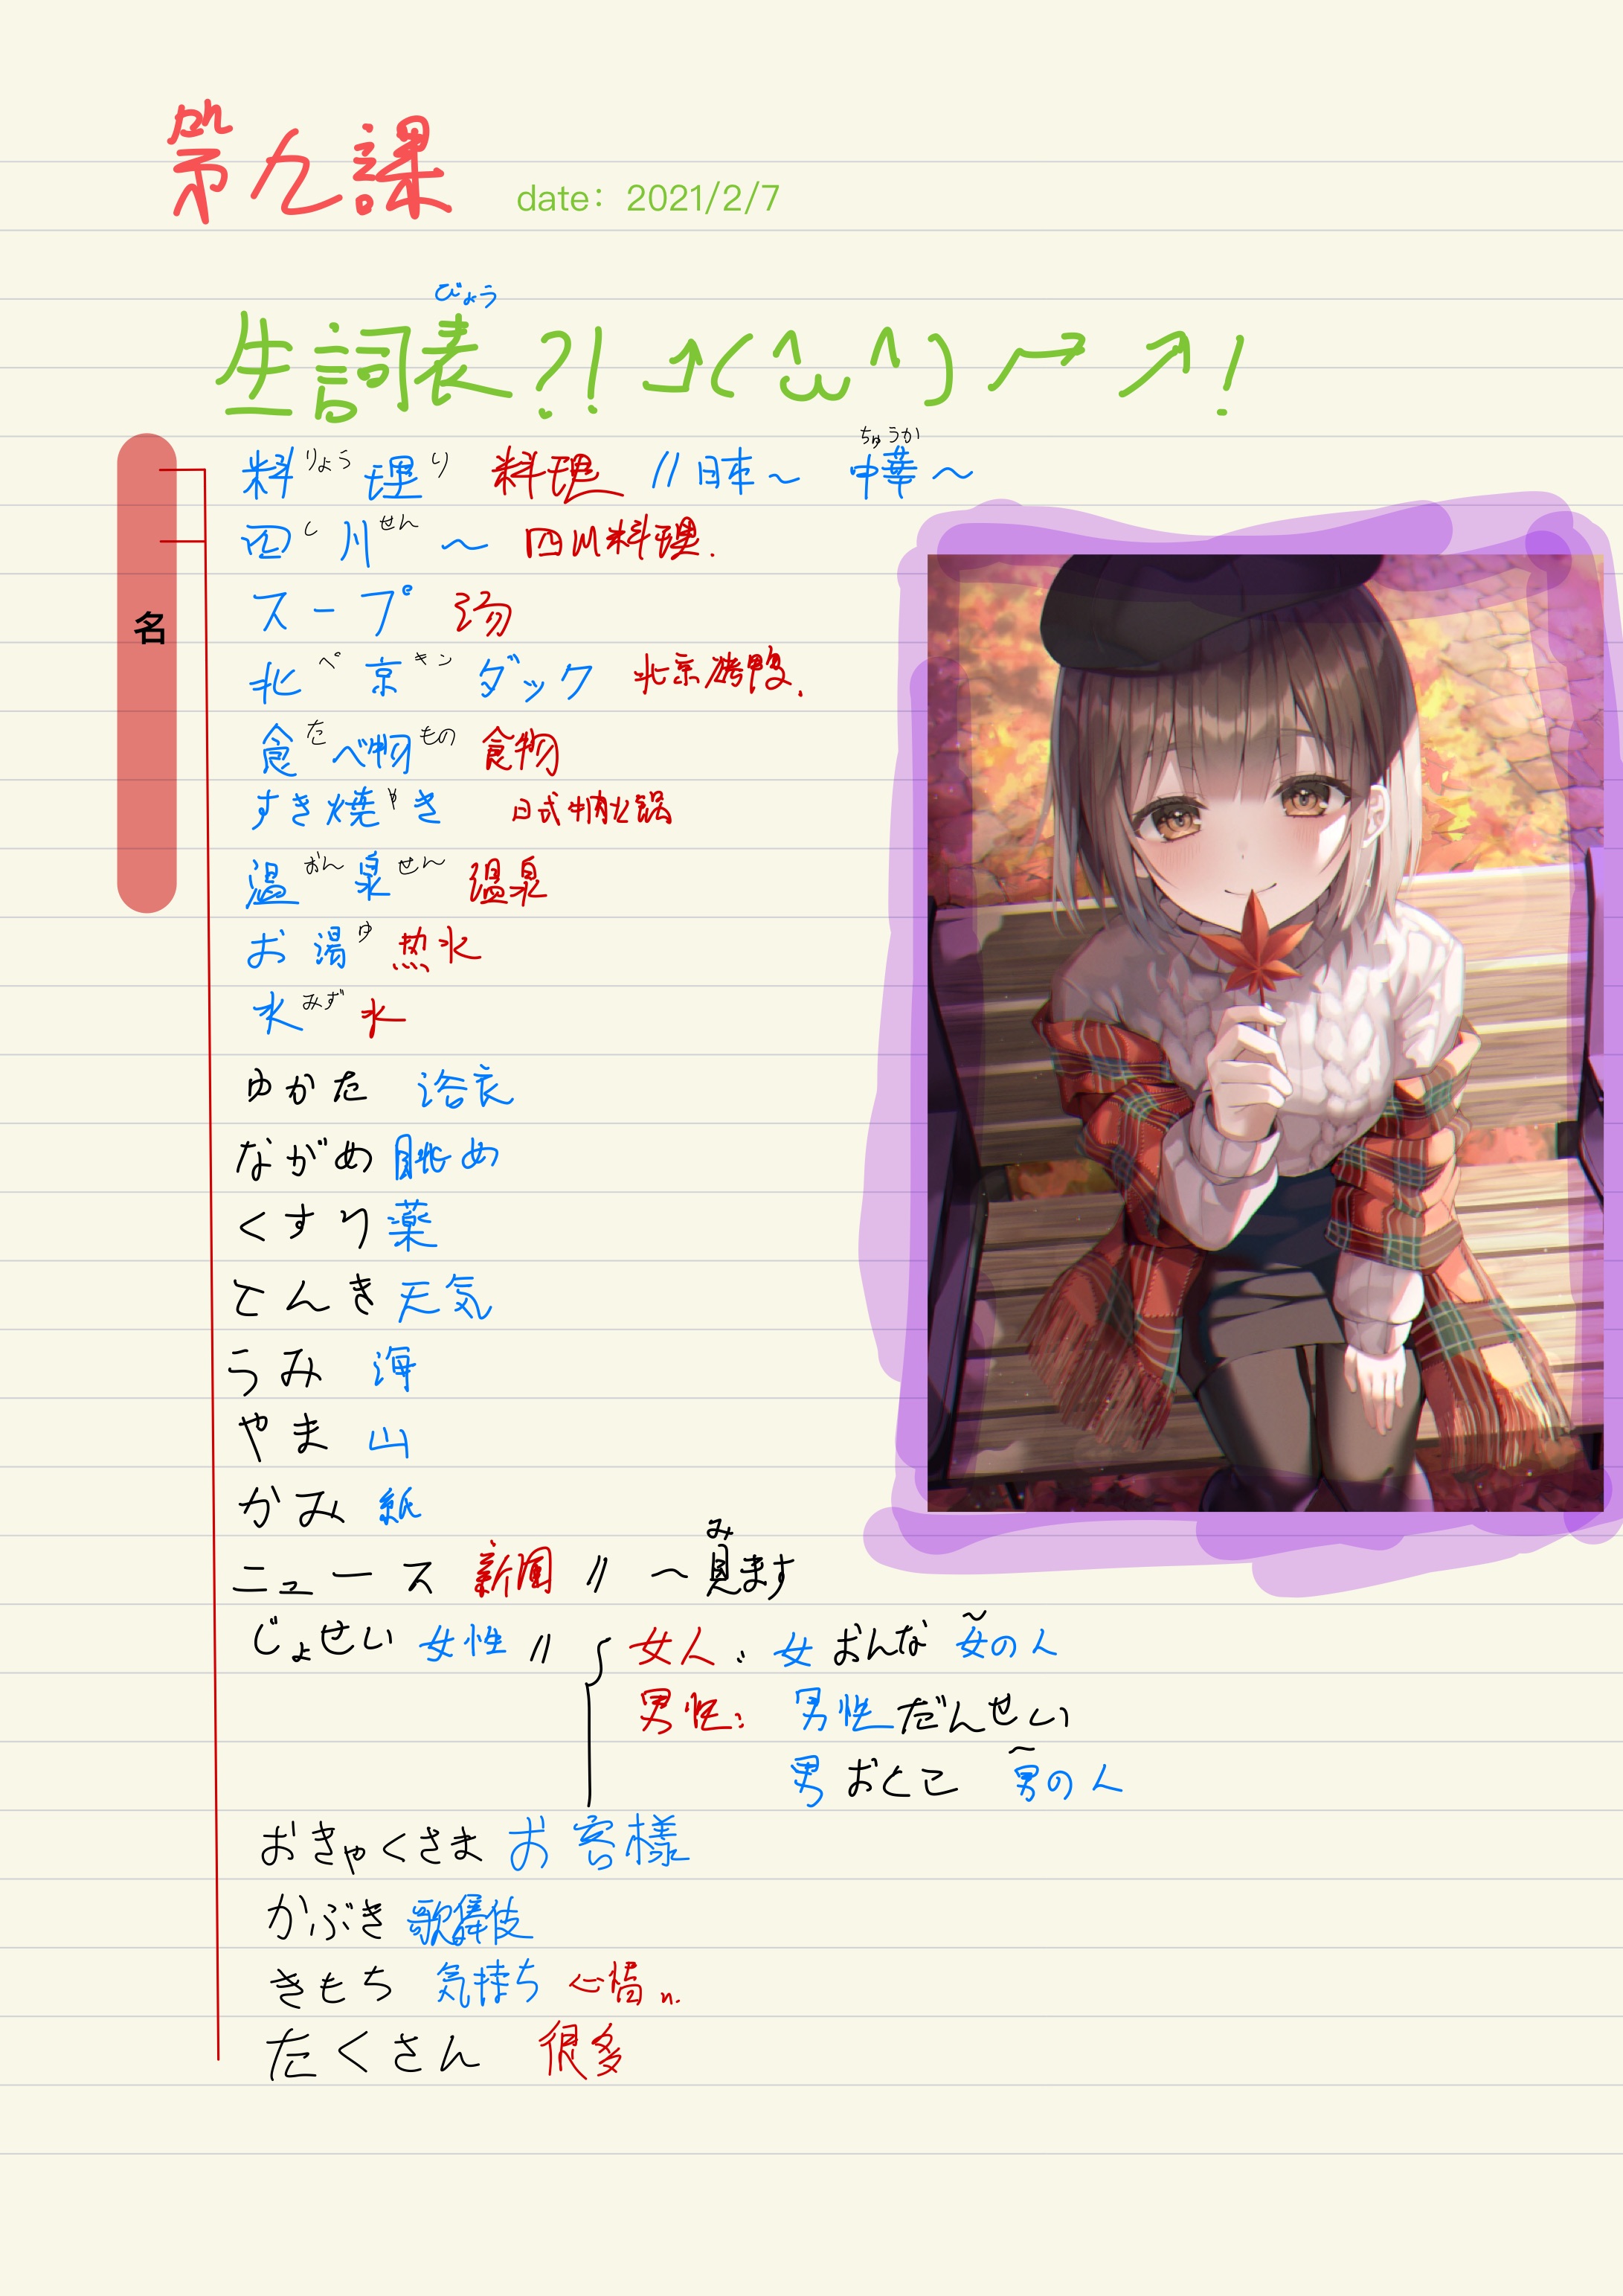 第九課 date：2021/2/7
びょう
生詞表?! ⤴(^ω^)⤳↗!
名
ちゅうか
料りょう理り 料理 // 日本～ 中華～
四し川せん～ 四川料理.
スープ 汤
北ペ京キンダック 北京烤鸭.
食たべ物もの 食物
すき焼やき 日式牛肉火锅
温おん泉せん 温泉
お湯ゆ 热水
水みず 水
ゆかた 浴衣
ながめ 眺め
くすり 薬
てんき 天気
うみ 海
やま 山
かみ 紙
み
ニュース 新闻 // ～見ます
じょせい 女性 // 女人: 女 おんな 女の人
男性: 男性 だんせい
男 おとこ 男の人
おきゃくさま お客様
かぶき 歌舞伎
きもち 気持ち 心情 n.
たくさん 很多